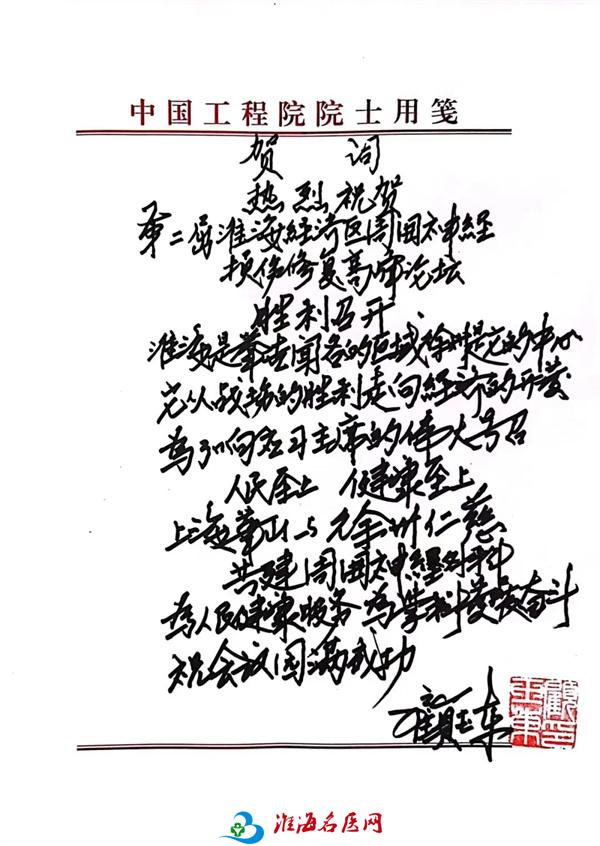 中国工程院院士用笺
贺 词
热烈祝贺
第二届淮海经济区周围神经
损伤修复高峰论坛
胜利召开
淮海是举世闻名的区域,徐州是它的中心
它从战场的胜利走向经济的开发
为了响应习主席的伟大号召
人民至上 健康至上
上海华山与徐州仁慈
共建周围神经外科
为人民健康服务为学科发展奋斗
祝会议圆满成功
顾玉东
顾玉东印
淮海名医网